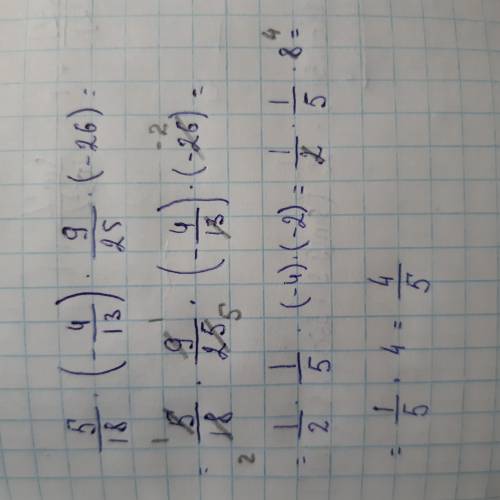 5/18 · (- 4/13) · 9/25 · (-26) =
= 5/18 · 9/25 · (- 4/13) · (-26) =
= 1/2 · 1/5 · (-4) · (-2) = 1/2 · 1/5 · 8 =
= 1/5 · 4 = 4/5